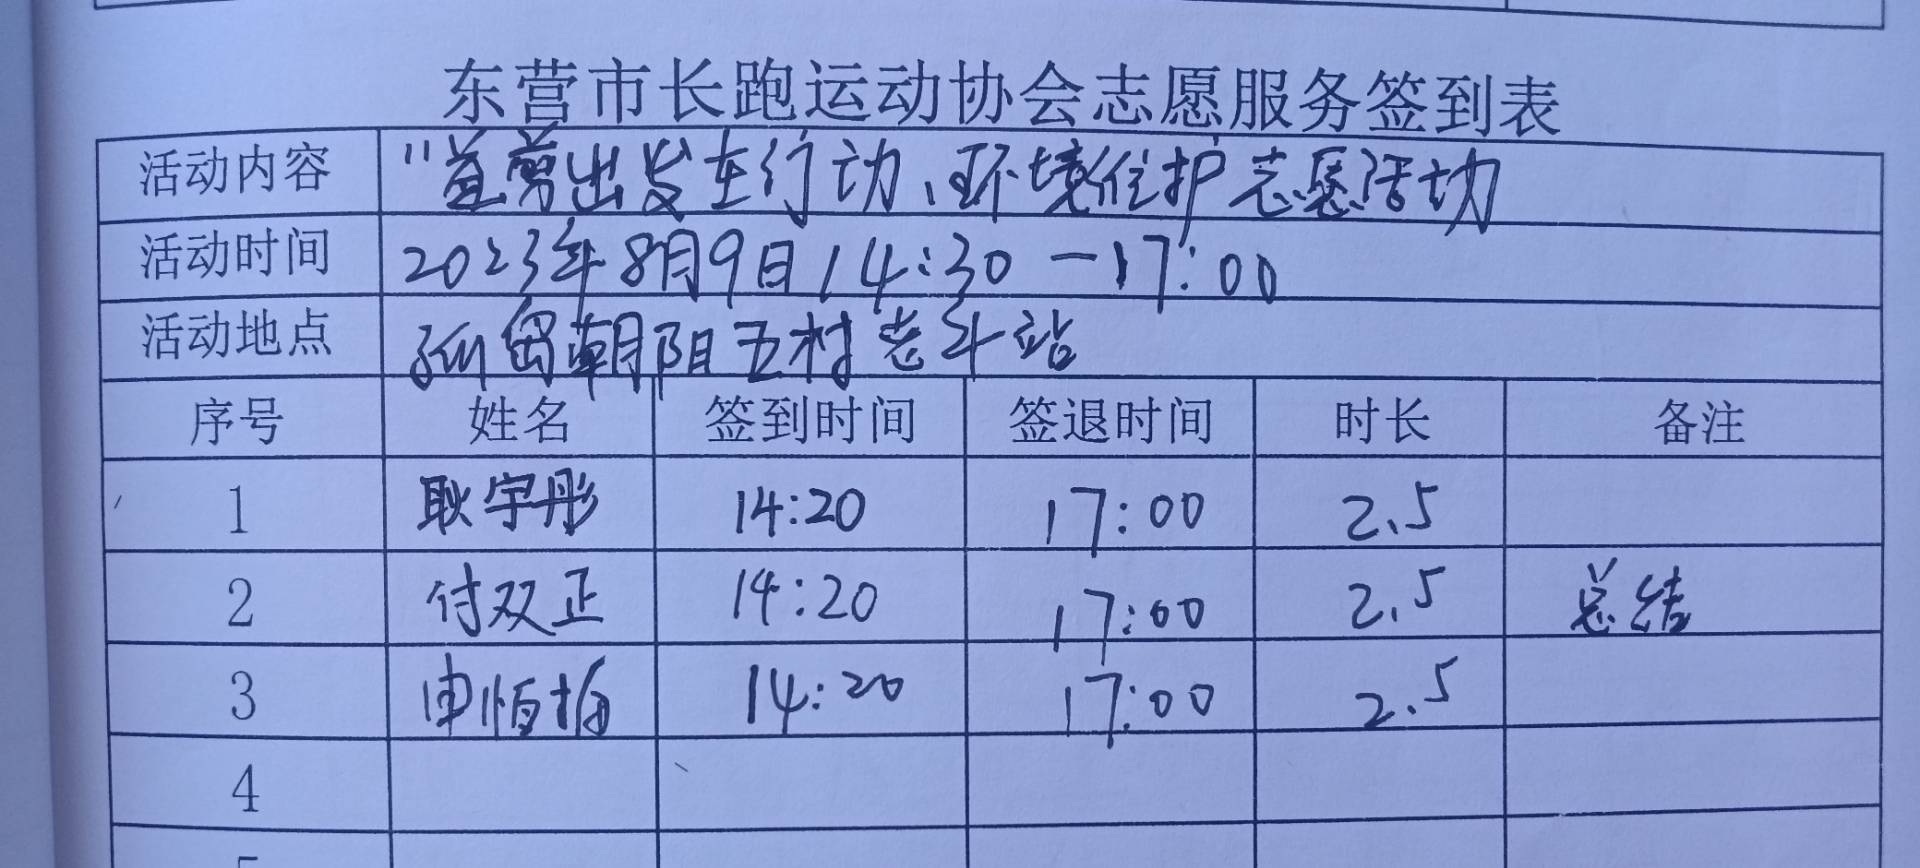 东营市长跑运动协会志愿服务签到表
活动内容 出发在行动、环境保护志愿活动
活动时间 2023年8月9日14:30一17:00
活动地点 孤岛朝阳五村 站
序号 姓名 签到时间 签退时间 时长 备注
1 耿宇彤 14:20 17:00 2.5
2 付双正 14:20 17:00 2.5 总结
3 申恒 14:20 17:00 2.5
4